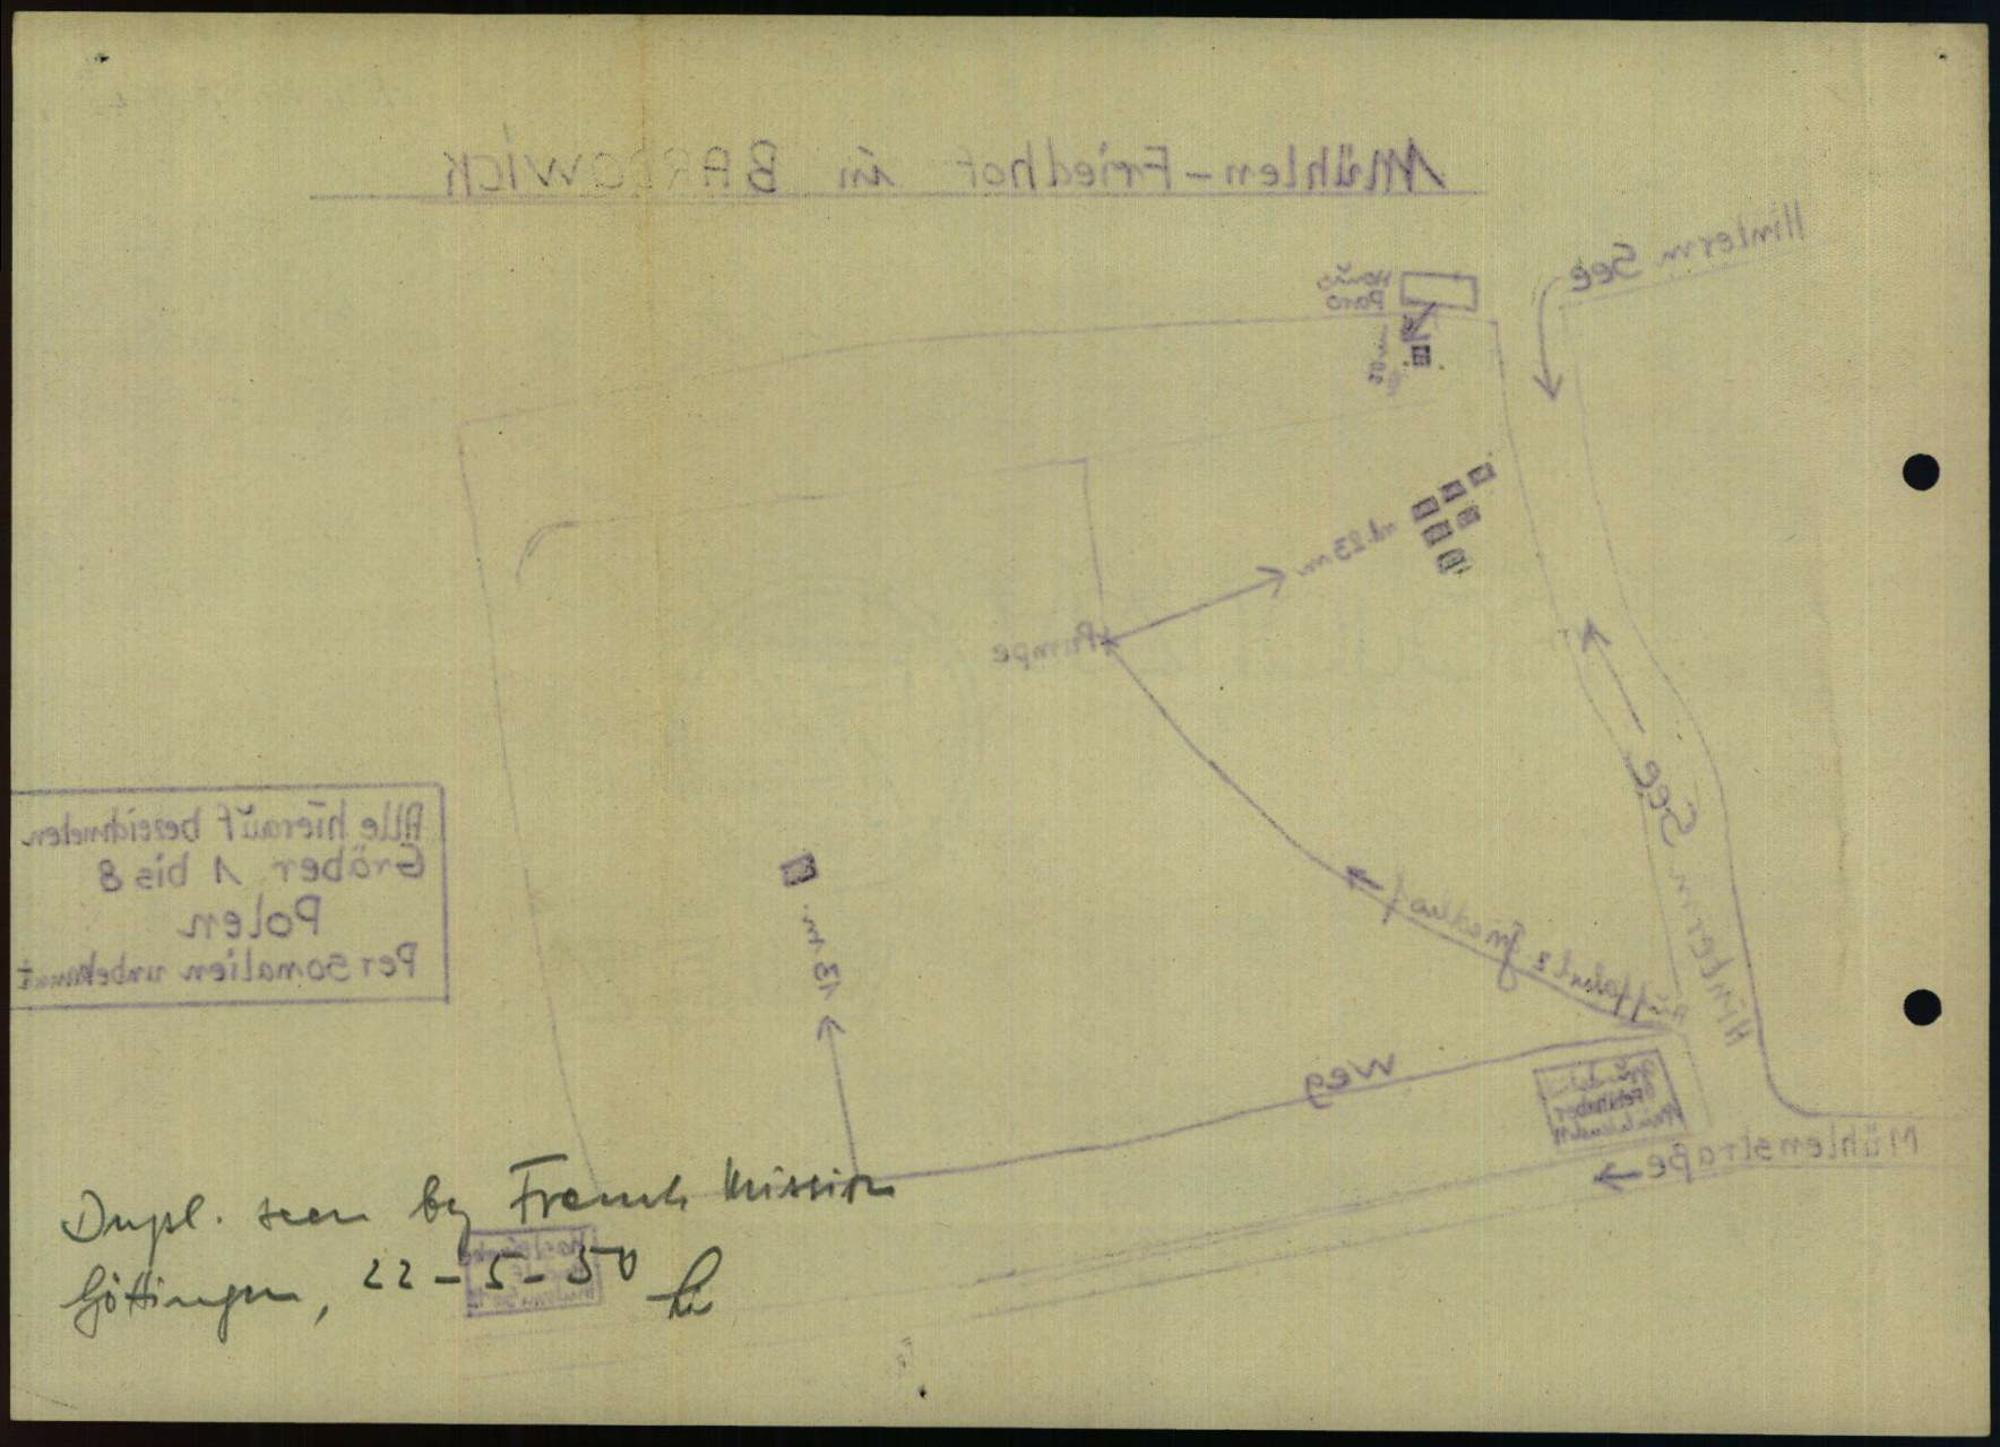 Mühlen-Friedhof in BARDOWICK
Hinterm See
Haus
rd. 23 m
Pumpe
Hinterm See
Alle hierauf bezeichneten
Gräber 1 bis 8
Polen
Personalien unbekannt
13 m
Friedhof
Weg
Mühlenstraße
Dupl. seen by French Mission
Göttingen, 22-5-50